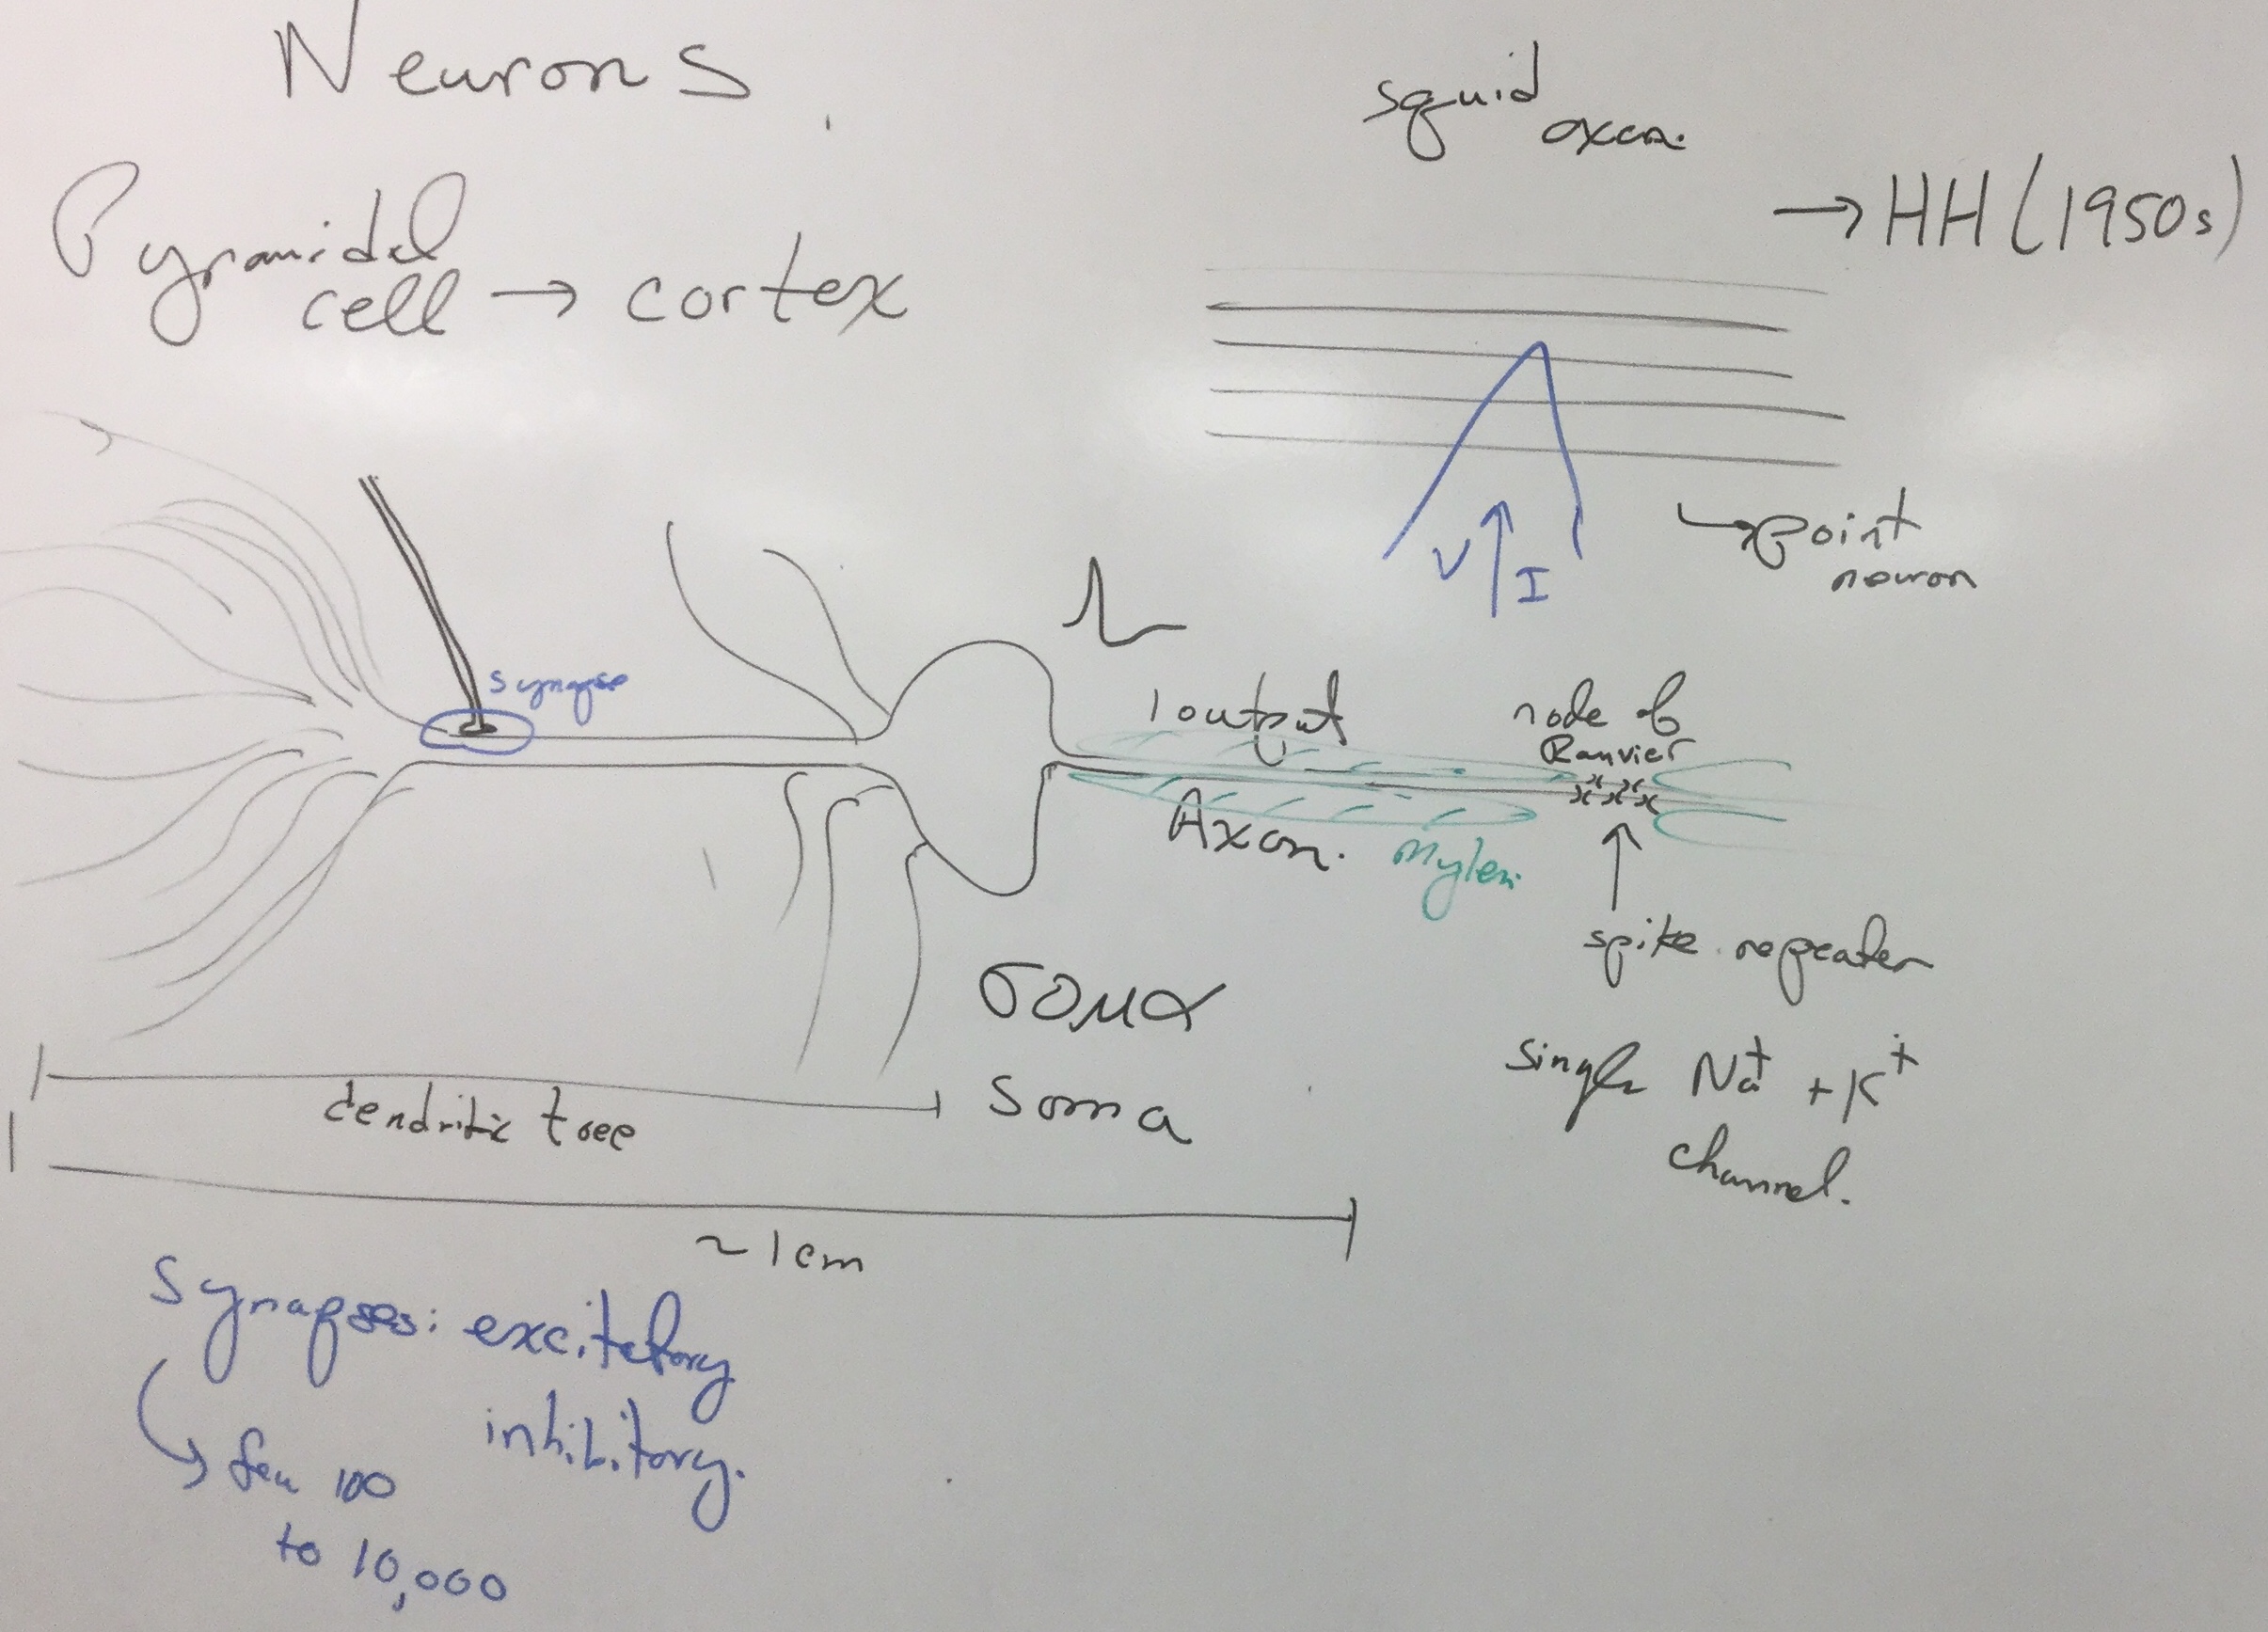 Neurons
squid
axon.
→ HH (1950s)
Pyramidal
cell → cortex
V ↑ I
→ point
neuron
synapse
1 output
node of
Ranvier
Axon.
Mylein
spike repeater
σομα
Soma
single Na+ + K+
channel.
dendritic tree
~ 1 cm
Synapses: excitatory
inhibitory.
→ few 100
to 10,000